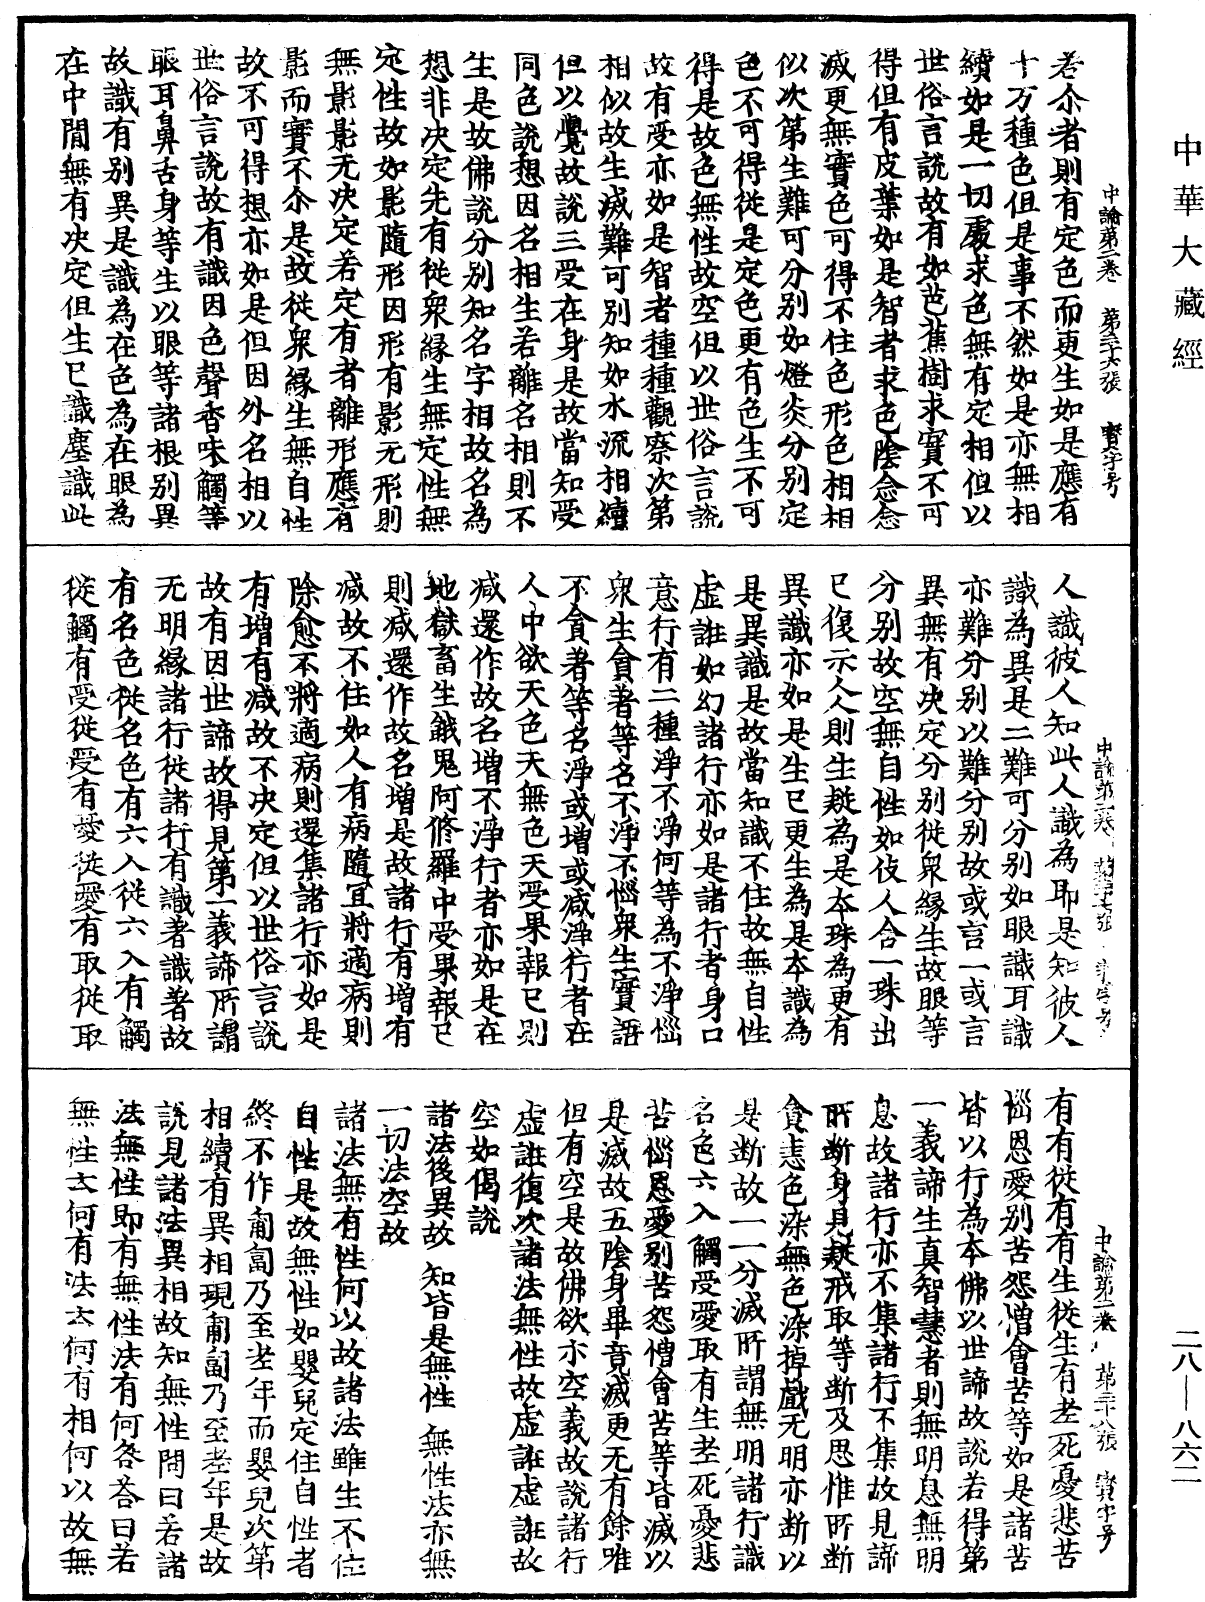 中華大藏經
中論第二卷　第三十六張　寶字号
老尒者則有定色而更生如是應有
十万種色但是事不然如是亦無相
續如是一切處求色無有定相但以
世俗言說故有如芭蕉樹求實不可
得但有皮葉如是智者求色陰念念
滅更無實色可得不住色形色相相
似次第生難可分別如燈炎分別定
色不可得從是定色更有色生不可
得是故色無性故空但以世俗言說
故有受亦如是智者種種觀察次第
相似故生滅難可別知如水流相續
但以覺故說三受在身是故當知受
同色說想因名相生若離名相則不
生是故佛說分別知名字相故名為
想非決定先有從衆緣生無定性無
定性故如影隨形因形有影无形則
無影影无決定若定有者離形應有
影而實不尒是故從衆緣生無自性
故不可得想亦如是但因外名相以
世俗言說故有識因色聲香味觸等
眼耳鼻舌身等生以眼等諸根別異
故識有別異是識為在色為在眼為
在中間無有決定但生已識塵識此
中論第二卷　第三十七張　寶字号
人識彼人知此人識為即是知彼人
識為異是二難可分別如眼識耳識
亦難分別以難分別故或言一或言
異無有決定分別從衆緣生故眼等
分別故空無自性如伎人含一珠出
已復示人人則生疑為是本珠為更有
異識亦如是生已更生為是本識為
是異識是故當知識不住故無自性
虛誑如幻諸行亦如是諸行者身口
意行有二種淨不淨何等為不淨惱
衆生貪著等名不淨不惱衆生實語
不貪著等名淨或增或减淨行者在
人中欲天色天無色天受果報已則
减還作故名增不淨行者亦如是在
地獄畜生餓鬼阿修羅中受果報已
則减還作故名增是故諸行有增有
减故不住如人有病隨宜將適病則
除愈不將適病則還集諸行亦如是
有增有减故不決定但以世俗言說
故有因世諦故得見第一義諦所謂
无明緣諸行從諸行有識著識著故
有名色從名色有六入從六入有觸
從觸有受從受有愛從愛有取從取
中論第二卷　第三十八張　寶字号
有有從有有生從生有老死憂悲苦
惱恩愛別苦怨憎會苦等如是諸苦
皆以行為本佛以世諦故說若得第
一義諦生真智慧者則無明息無明
息故諸行亦不集諸行不集故見諦
所斷身見疑戒取等斷及思惟所斷
貪恚色染無色染掉戲无明亦斷以
是斷故一一分滅所謂無明諸行識
名色六入觸受愛取有生老死憂悲
苦惱恩愛別苦怨憎會苦等皆滅以
是滅故五陰身畢竟滅更无有餘唯
但有空是故佛欲示空義故說諸行
虛誑復次諸法無性故虛誑虛誑故
空如偈說
諸法後異故　知皆是無性　無性法亦無
一切法空故
諸法無有性何以故諸法雖生不住
自性是故無性如嬰兒定住自性者
終不作匍匐乃至老年而嬰兒次第
相續有異相現匍匐乃至老年是故
說見諸法異相故知無性問曰若諸
法無性即有無性法有何咎荅曰若
無性云何有法云何有相何以故無
二八—八六二